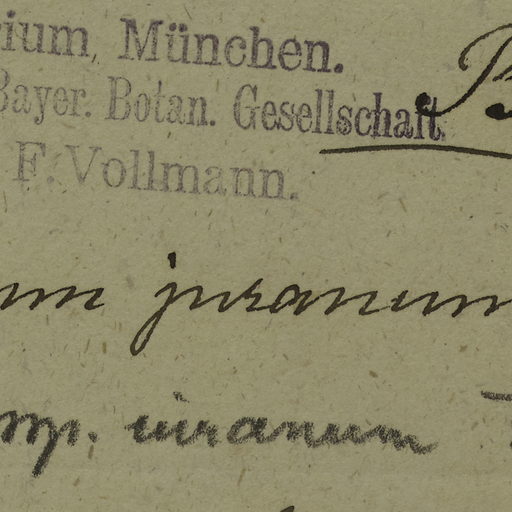 rium, München.
Bayer. Botan. Gesellschaft.
F. Vollmann.
um juranum
ssp. iuranum